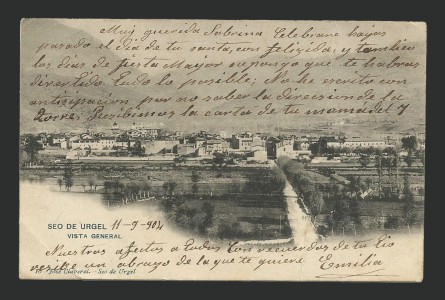 Muy querida Sobrina Celebrare hayas
pasado el dia de tu santa, con felizida, y tambien
los dias de fiesta Mayor supongo que te habras
divertido todo lo posible; No he escrito con
antizipacion, por no saber la direccion de la
Torre; Recibimos la carta de tu mama del 7
SEO DE URGEL 11-9-904
VISTA GENERAL
Nuestros afectos a todos con recuerdos de tu tio
recibe un abrazo de la que te quiere Emilia
José Claverol. - Seo de Urgel